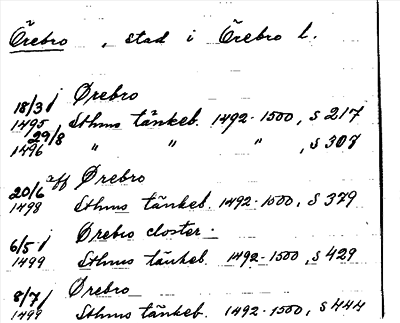 Örebro, stad i Örebro l.
18/3 i Örebro
1495 Sthms tänkeb. 1492-1500, s 217
29/8
1496 " " " , s 307
20/6 aff Örebro
1498 Sthms tänkeb. 1492-1500, s 379
6/5 i Örebro closter.
1499 Sthms tänkeb. 1492-1500, s 429
8/7 i Örebro
1499 Sthms tänkeb. 1492-1500, s 444